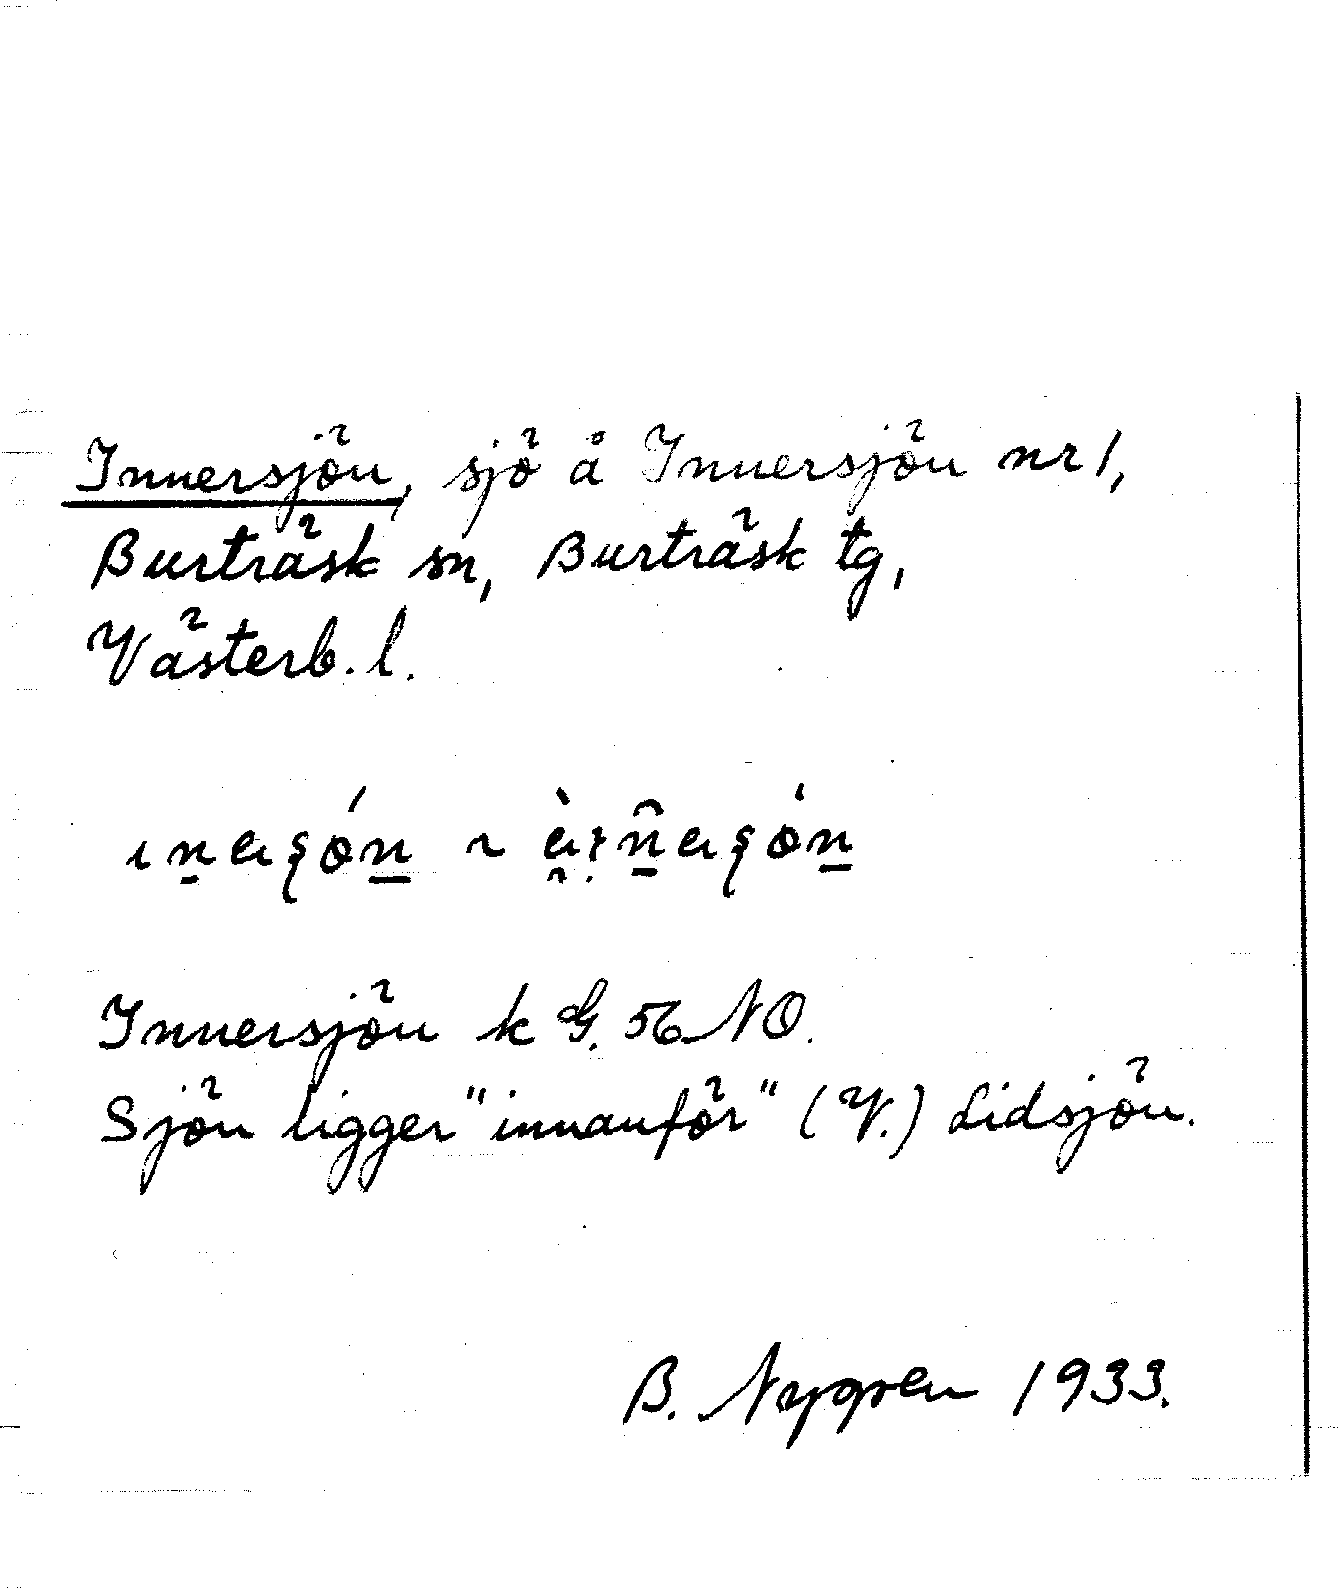 Innersjön, sjö å Innersjön nr 1,
Burträsk sn, Burträsk tg,
Västerb. l.
Innersjön k G. 56 NO.
Sjön ligger "innanför" (V.) Lidsjön.
B. Nygren 1933.